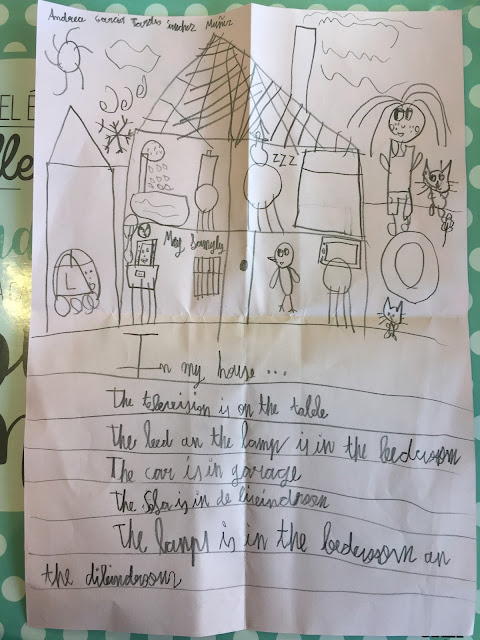 Andrea García Muñiz
zzz
In my house...
The television is on the table
The bed an the lamp is in the bedroom
The car is in garage
The Sofa is in de
The lamps is in the bedroom an
the
EL É
lle